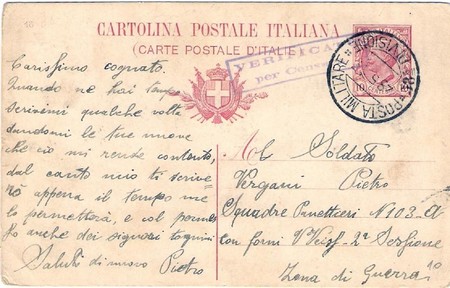 CARTOLINA POSTALE ITALIANA
(CARTE POSTALE D'ITALIE)
VERIFICA
per Cens
POSTA MILITARE
DIVISIONE
10
Carissimo cognato.
Quando ne hai tempo
scrivimi qualche volta
dandomi le tue nuove
che ciò mi rende contento,
dal canto mio ti scrive-
rò appena il tempo me
lo permetterà, e col
anche dei signori
Saluti di nuovo
Pietro
Al Soldato
Vergani Pietro
Squadre Panettieri N 103-A
con forni 2ª Sezione
Zona di Guerra